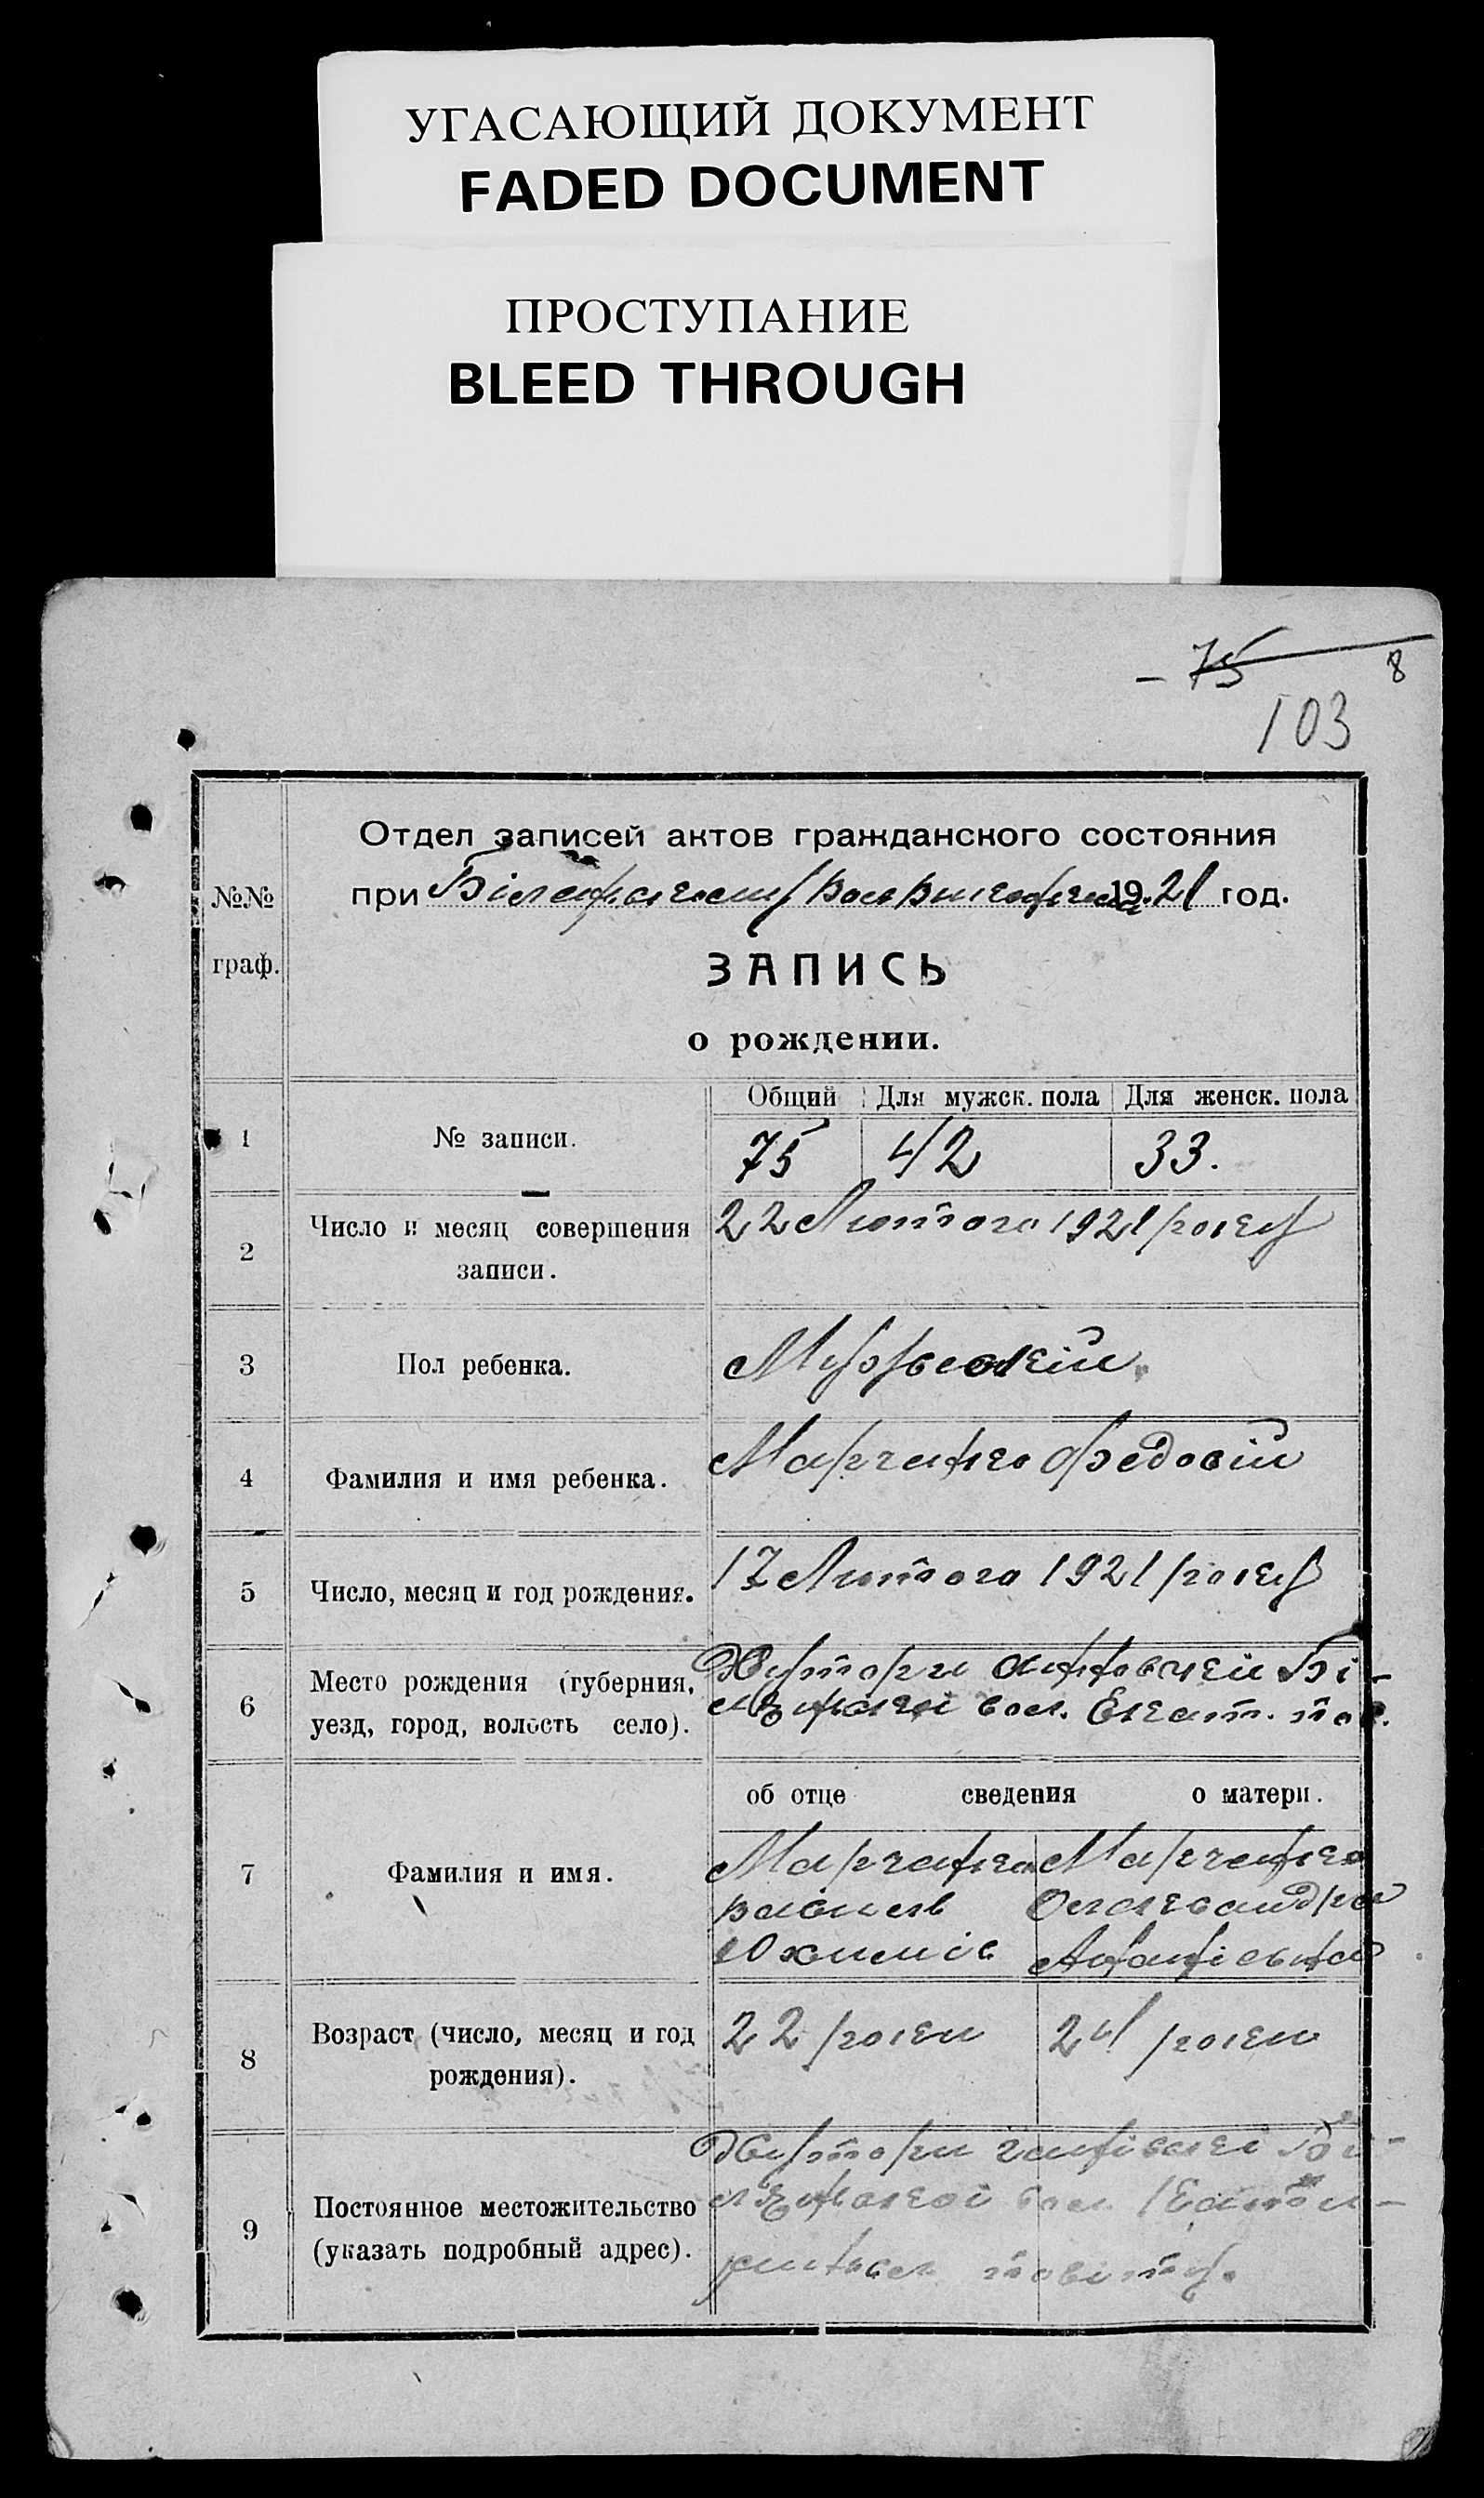 УГАСАЮЩИЙ ДОКУМЕНТ
FADED DOCUMENT
ПРОСТУПАНИЕ
BLEED THROUGH
75
8
103
Отдел записей актов гражданского состояния
при 1921 год.
№№ граф.
ЗАПИСЬ
о рождении.
Общий Для мужск. пола Для женск. пола
1 № записи. 75 42 33.
2 Число и месяц совершения 22 Лютого 1921 року
записи.
3 Пол ребенка. Мужеській
4 Фамилия и имя ребенка. Марченко Федосій
5 Число, месяц и год рождения. 17 Лютого 1921 року
6 Место рождения (губерния, Хутори Бі-
уезд, город, волость село). вол. Екат. пов.
об отце сведения о матери.
7 Фамилия и имя. Марченко Марченко
Василь Олександра
Юхимів
8 Возраст (число, месяц и год 22 роки 24 роки
рождения).
Хутори
9 Постоянное местожительство вол.
(указать подробный адрес). повіту.